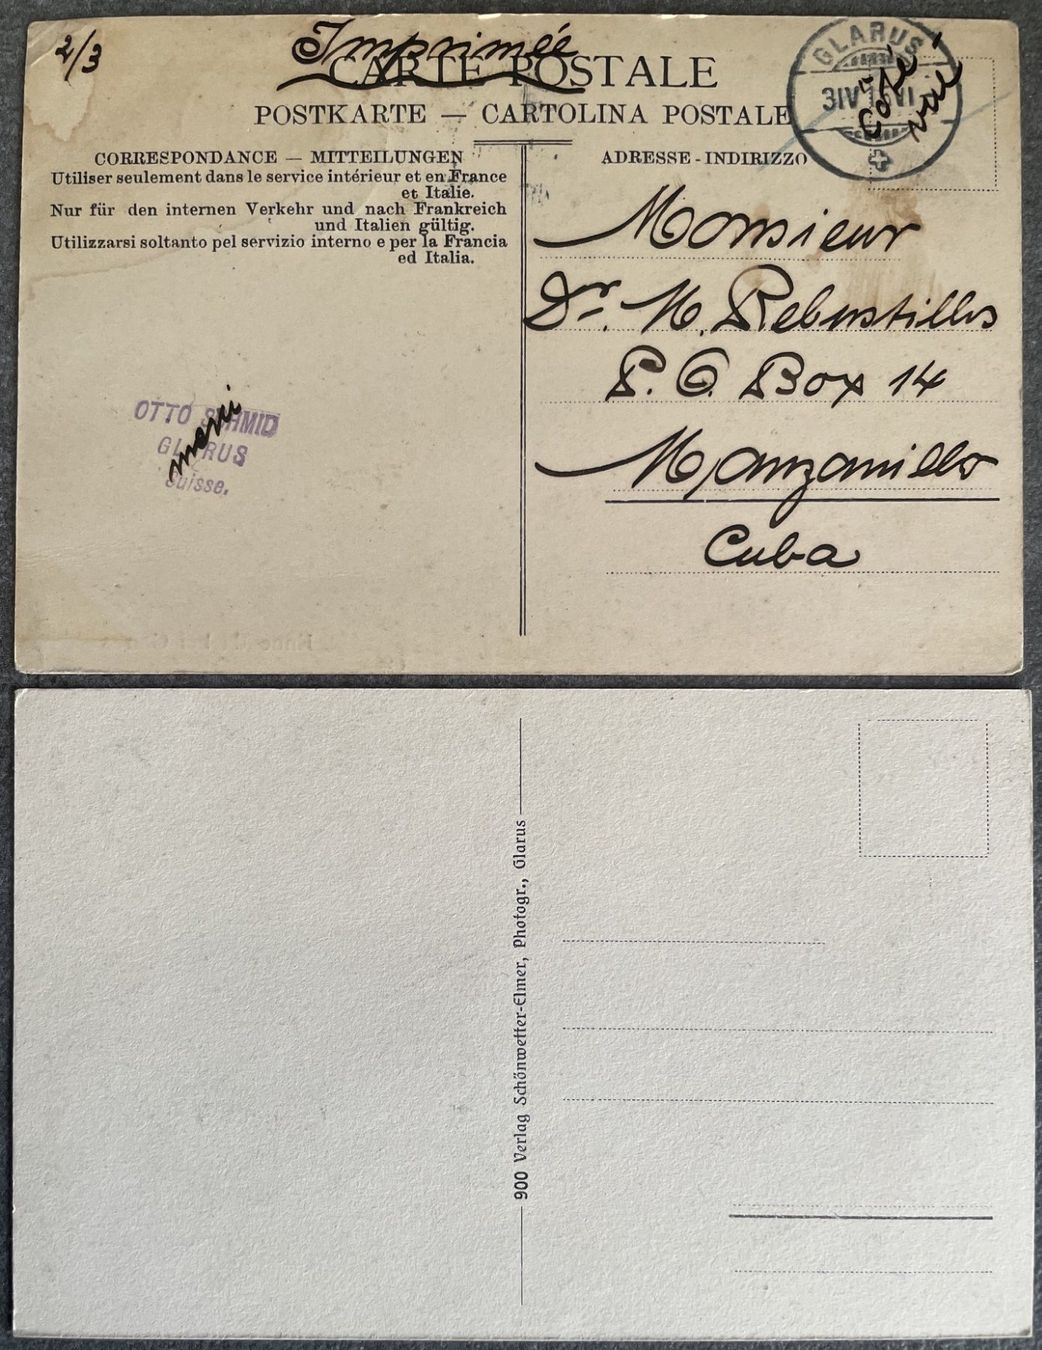 2/3
Imprimée
CARTE POSTALE
POSTKARTE — CARTOLINA POSTALE
GLARUS
CORRESPONDANCE — MITTEILUNGEN
Utiliser seulement dans le service intérieur et en France
et Italie.
Nur für den internen Verkehr und nach Frankreich
und Italien gültig.
Utilizzarsi soltanto pel servizio interno e per la Francia
ed Italia.
merci
OTTO SCHMID
GLARUS
Suisse.
ADRESSE - INDIRIZZO
Monsieur
Dr. M. Rebustillos
P. O. Box 14
Manzanillo
Cuba
900 Verlag Schönwetter-Elmer, Photogr., Glarus